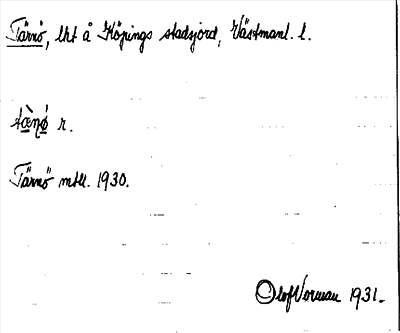 Tärnö, lht å Köpings stadsjord, Västmanl. l.
tæ̀ṇǿ r.
Tärnö mtl. 1930.
Olof Norman 1931.